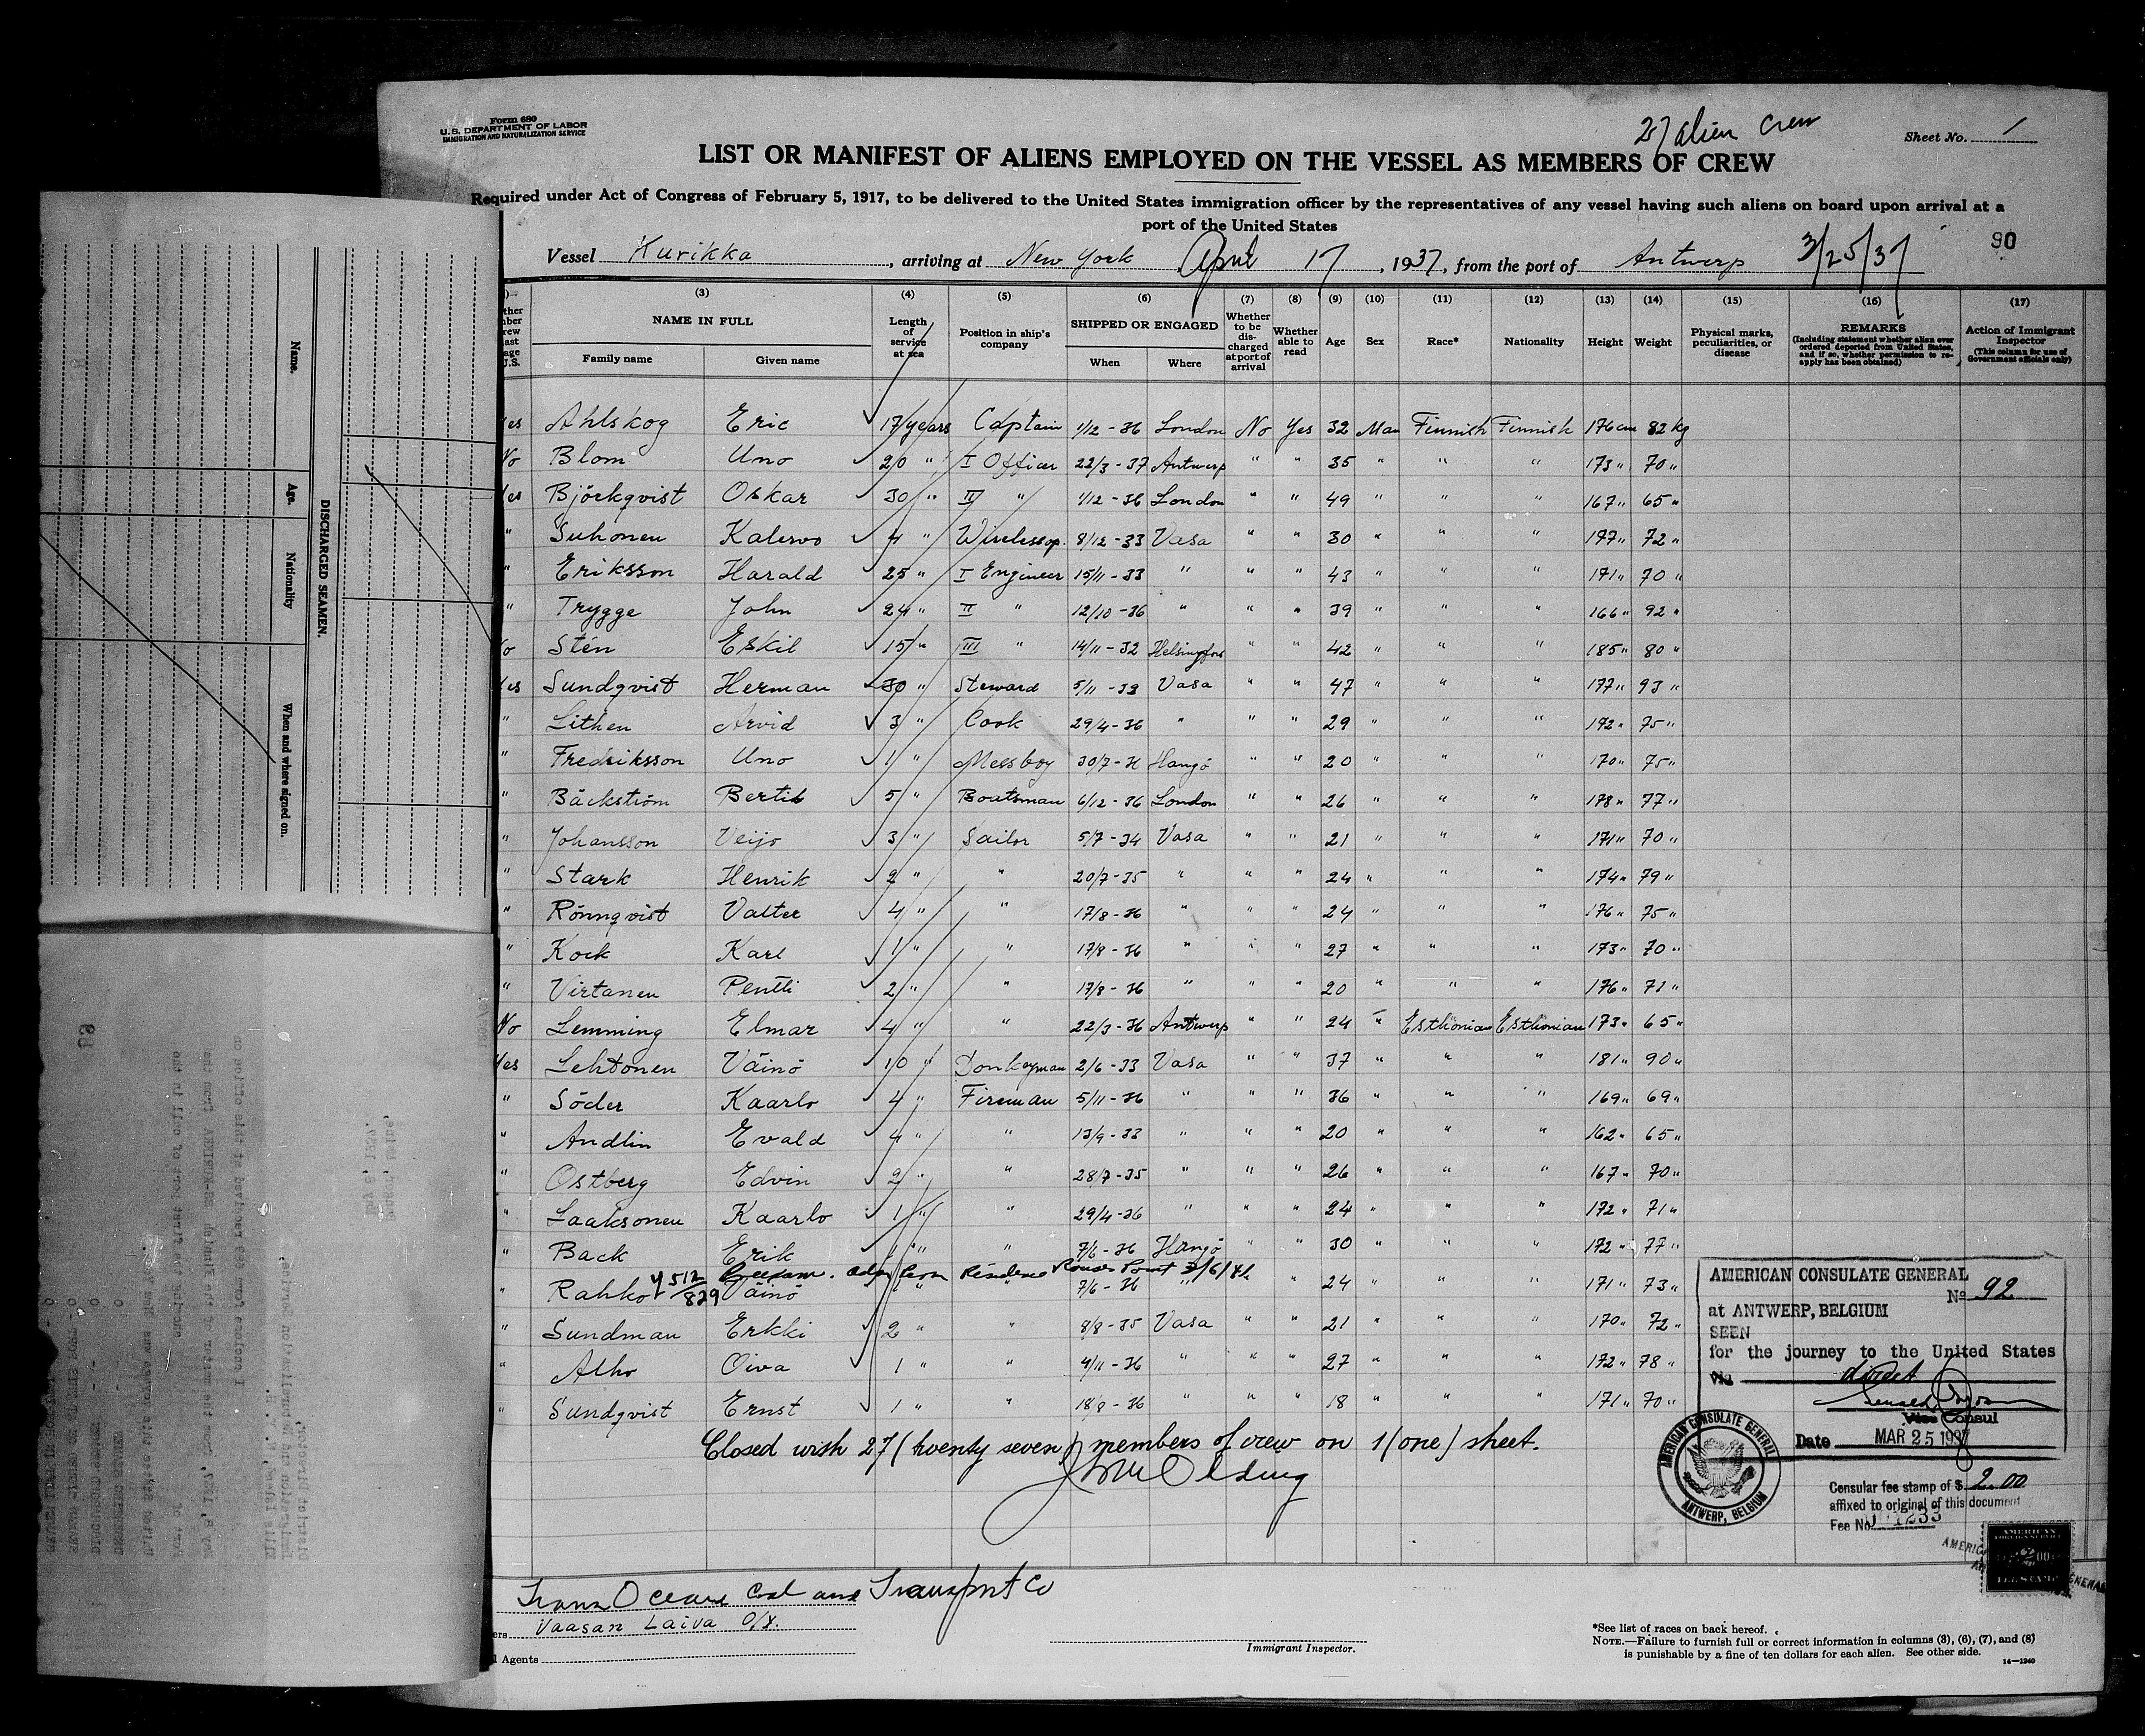 Form 680
U.S. DEPARTMENT OF LABOR
IMMIGRATION AND NATURALIZATION SERVICE
27 alien crew
Sheet No. 1
LIST OR MANIFEST OF ALIENS EMPLOYED ON THE VESSEL AS MEMBERS OF CREW
Required under Act of Congress of February 5, 1917, to be delivered to the United States immigration officer by the representatives of any vessel having such aliens on board upon arrival at a
port of the United States
90
Vessel Kurikka, arriving at New York April 17, 1937, from the port of Antwerp 3/25/37
(3) (4) (5) (6) (7) (8) (9) (10) (11) (12) (13) (14) (15) (16) (17)
NAME IN FULL
Family name Given name
Length of service at sea
Position in ship's company
SHIPPED OR ENGAGED
When Where
Whether to be discharged at port of arrival
Whether able to read
Age Sex Race* Nationality Height Weight
Physical marks, peculiarities, or disease
REMARKS
(Including statement whether alien ever ordered deported from United States, and if so, whether permission to reapply has been obtained)
Action of Immigrant Inspector
(This column for use of Government officials only)
Yes Ahlskog Eric 17 years Captain 1/12-36 London No Yes 32 Man Finnish Finnish 176 cm 82 kg
No Blom Uno 20 " I Officer 22/3-37 Antwerp " " 35 " " " 173 " 70 "
Yes Björkqvist Oskar 30 " II " 1/12-36 London " " 49 " " " 167 " 65 "
" Suhonen Kalervo 4 " Wirelessop. 8/12-33 Vasa " " 30 " " " 177 " 72 "
" Eriksson Harald 25 " I Engineer 15/11-33 " " " 43 " " " 171 " 70 "
" Trygge John 24 " II " 12/10-36 " " " 39 " " " 166 " 92 "
No Stén Eskil 15 " III " 14/11-32 Helsingfors " " 42 " " " 185 " 80 "
Yes Sundqvist Herman 30 " Steward 5/11-33 Vasa " " 47 " " " 177 " 93 "
" Lithen Arvid 3 " Cook 29/4-36 " " " 29 " " " 172 " 75 "
" Fredriksson Uno 1 " Messboy 30/7-36 Hangö " " 20 " " " 170 " 75 "
" Bäckström Bertil 5 " Boatsman 6/12-36 London " " 26 " " " 178 " 77 "
" Johansson Veijo 3 " Sailor 5/7-34 Vasa " " 21 " " " 171 " 70 "
" Stark Henrik 2 " " 20/7-35 " " " 24 " " " 174 " 79 "
" Rönnqvist Valter 4 " " 17/8-36 " " " 24 " " " 176 " 75 "
" Kock Karl 1 " " 17/8-36 " " " 27 " " " 173 " 70 "
" Virtanen Pentti 2 " " 17/8-36 " " " 20 " " " 176 " 71 "
No Lemming Elmar 4 " " 22/3-36 Antwerp " " 24 " Esthonian Esthonian 173 " 65 "
Yes Lehtonen Väinö 10 " Donkeyman 2/6-33 Vasa " " 37 " " " 181 " 90 "
" Söder Kaarlo 4 " Fireman 5/11-36 " " " 36 " " " 169 " 69 "
" Andlin Evald 4 " " 13/9-33 " " " 20 " " " 162 " 65 "
" Östberg Edvin 2 " " 28/7-35 " " " 26 " " " 167 " 70 "
" Laaksonen Kaarlo 1 " " 29/4-36 " " " 24 " " " 172 " 71 "
" Back Erik 1 " " 7/6-36 Hangö " " 30 " " " 172 " 77 "
Residence Rouses Point
" Rahko Väinö " " 7/6-36 " " " 24 " " " 171 " 73 "
" Sundman Erkki 2 " " 8/8-35 Vasa " " 21 " " " 170 " 72 "
" Alho Oiva 1 " " 4/11-36 " " " 27 " " " 172 " 78 "
" Sundqvist Ernst 1 " " 18/9-36 " " " 18 " " " 171 " 70 "
Closed wish 27 (twenty seven) members of crew on 1 (one) sheet.
AMERICAN CONSULATE GENERAL
No 92
at ANTWERP, BELGIUM
SEEN
for the journey to the United States
Via direct
Vice Consul
Date MAR 25 1937
AMERICAN CONSULATE GENERAL
ANTWERP, BELGIUM
Censular fee stamp of $ 2.00
affixed to original of this document
Fee No. 1233
Trans Oceanic Coal and Transport Co
Vaasan Laiva O/Y.
Agents
Immigrant Inspector.
*See list of races on back hereof.
NOTE.—Failure to furnish full or correct information in columns (3), (6), (7), and (8)
is punishable by a fine of ten dollars for each alien. See other side.
14—1240
DISCHARGED SEAMEN.
Name. Age. Nationality When and where signed on.
89